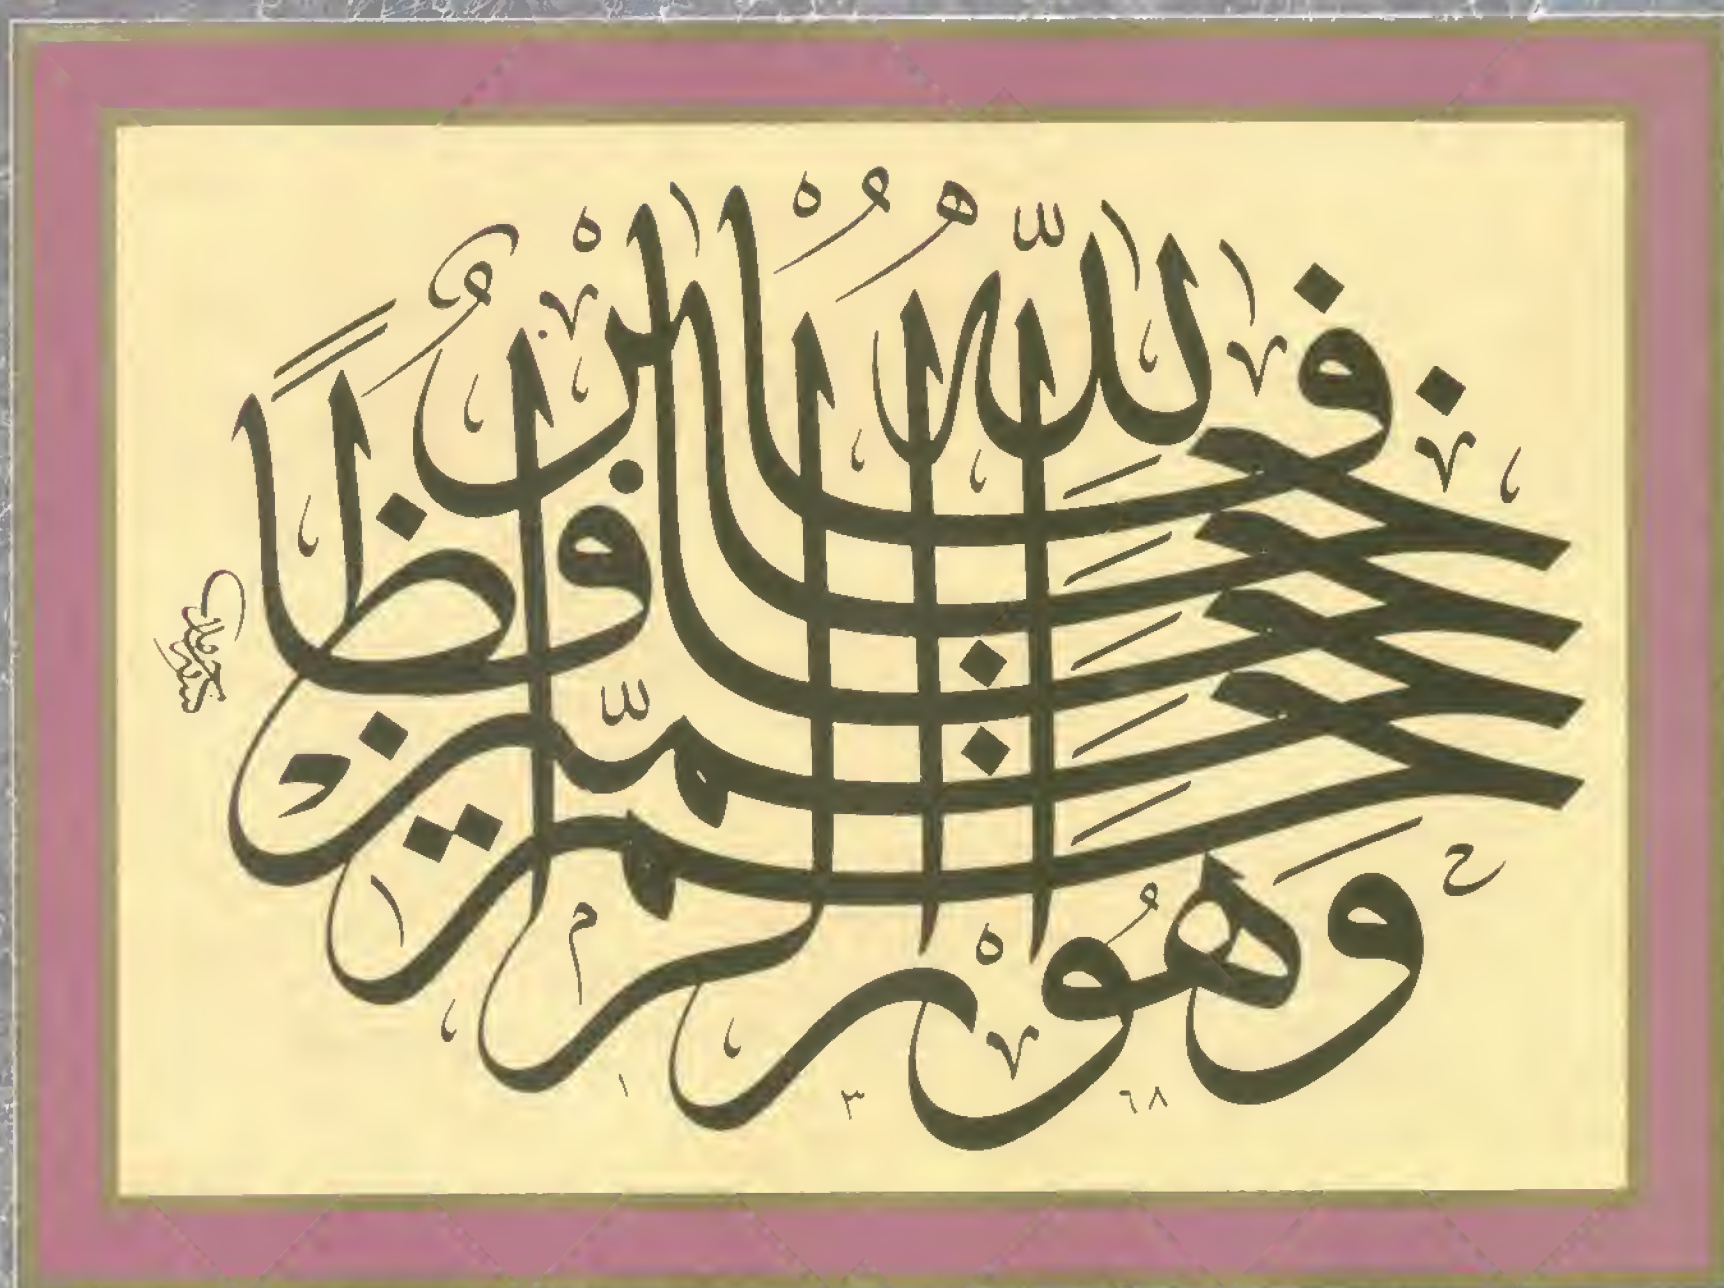 فَاللّٰهُ خَيْرٌ حَافِظًا وَهُوَ اَرْحَمُ الرَّاحِمِينَ
١٣٦٨